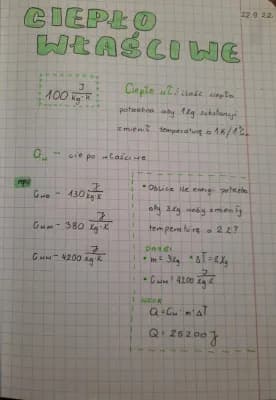 CIEPŁO
22.9.22.
WŁAŚCIWE
100 J/kg·K
Ciepło wł: ilość ciepła
potrzebna aby 1kg substancji
zmienił temperaturę o 1K/1°C.
Cw - ciepło właściwe
np:
- 130 J/kg·K
- 380 J/kg·K
- 4200 J/kg·K
• Oblicz ile energi potrzeba
aby 3kg wody zmieniły
temperaturę o 2°C?
DANE:
• m = 3kg • ΔT = 2K
• = 4200 J/kg·K
WZÓR
Q = Cw · m · ΔT
Q = 25200 J